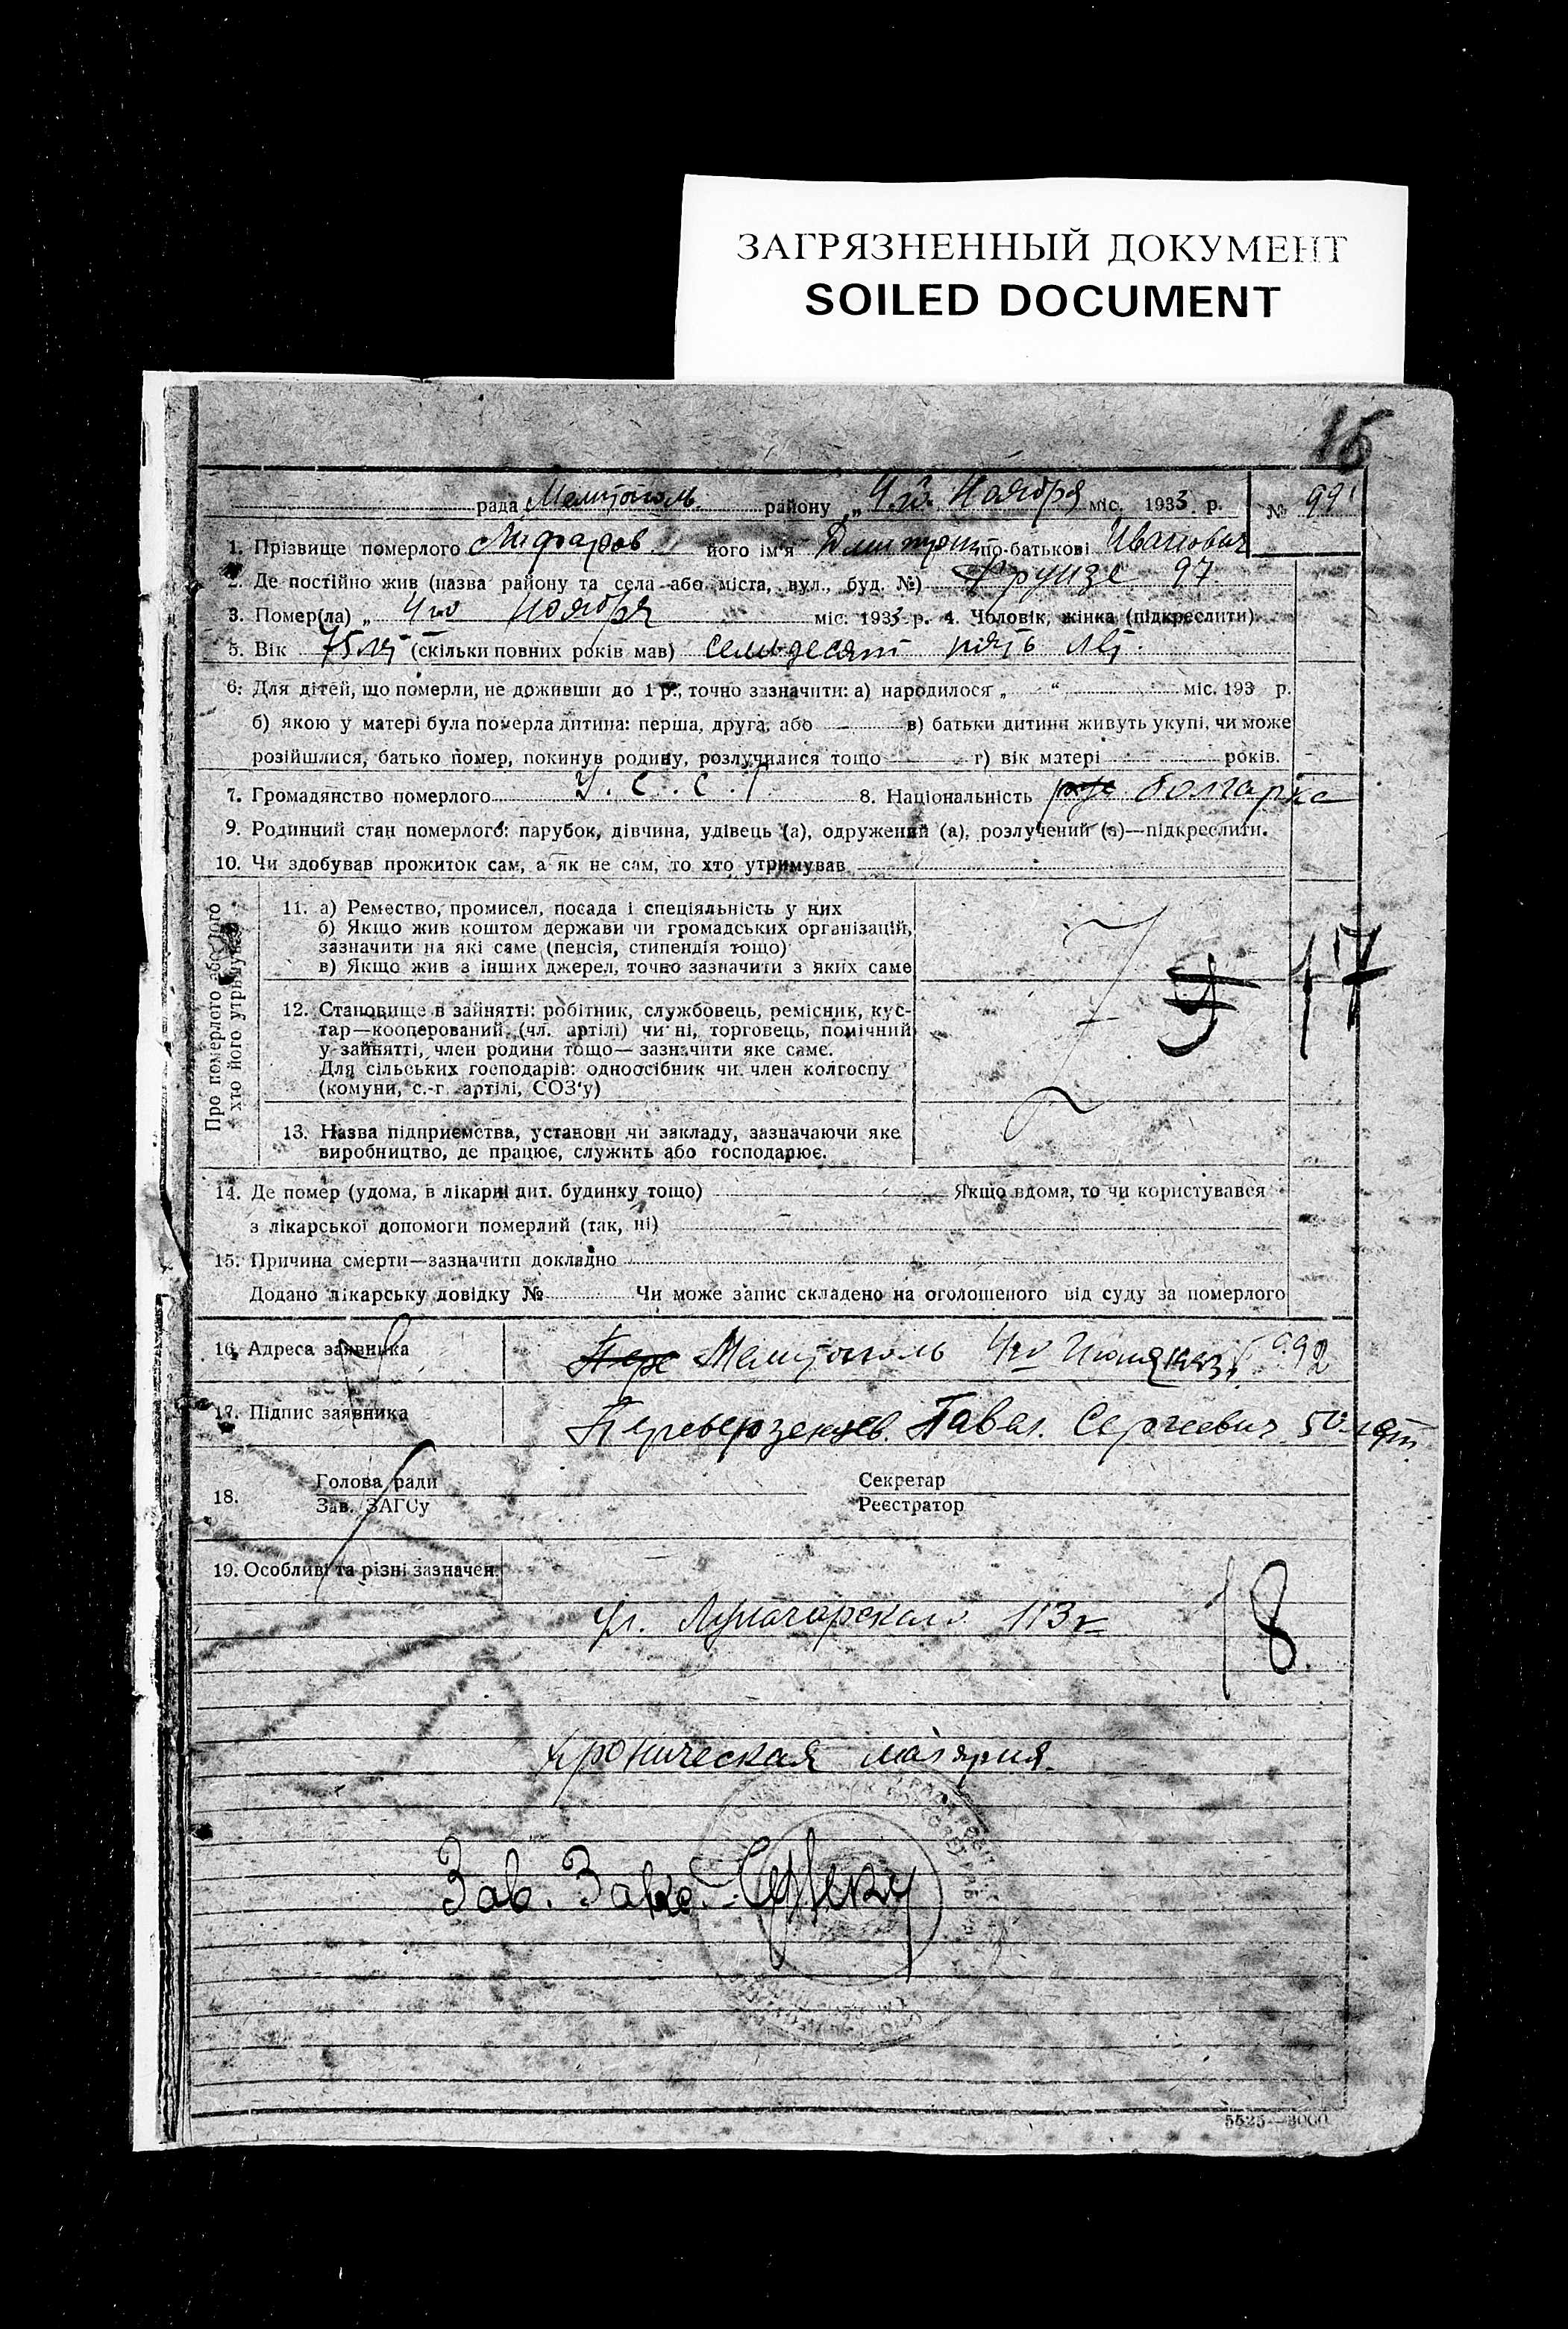 ЗАГРЯЗНЕННЫЙ ДОКУМЕНТ
SOILED DOCUMENT
15
рада Мелитополь району „ 4го Ноября міс. 1933 р. № 991
1. Прізвище померлого його ім'я Дмитрий по-батькові Иванович
2. Де постійно жив (назва району та села або міста, вул., буд. №) Фрунзе 97
3. Помер(ла) „ 4го Ноября міс. 1933 р. 4. Чоловік, жінка (підкреслити).
5. Вік 75 лет (скільки повних років мав) семьдесят пять лет.
6. Для дітей, що померли, не доживши до 1 р., точно зазначити: а) народилося „ “ міс. 193 р.
б) якою у матері була померла дитина: перша, друга, або в) батьки дитини живуть укупі, чи може
розійшлися, батько помер, покинув родину, розлучилися тощо г) вік матері років.
7. Громадянство померлого У.С.С.Р 8. Національність болгарка
9. Родинний стан померлого: парубок, дівчина, удівець (а), одружений (а), розлучений (а)—підкреслити.
10. Чи здобував прожиток сам, а як не сам, то хто утримував
Про померлого або того
хто його утримував
11. а) Ремество, промисел, посада і спеціяльність у них
б) Якщо жив коштом держави чи громадських організацій,
зазначити на які саме (пенсія, стипендія тощо)
в) Якщо жив з інших джерел, точно зазначити з яких саме
17
12. Становище в зайнятті: робітник, службовець, ремісник, кус-
тар—кооперований (чл. артілі) чи ні, торговець, помічний
у зайнятті, член родини тощо—зазначити яке саме.
Для сільських господарів: одноосібник чи член колгоспу
(комуни, с.-г. артілі, СОЗ'у)
13. Назва підприємства, установи чи закладу, зазначаючи яке
виробництво, де працює, служить або господарює.
14. Де помер (удома, в лікарні дит. будинку тощо) Якщо вдома, то чи користувався
з лікарської допомоги померлий (так, ні)
15. Причина смерти—зазначити докладно
Додано лікарську довідку № Чи може запис складено на оголошеного від суду за померлого
16. Адреса заявника Мелитополь 4го 992
17. Підпис заявника Павел. Сергеевич 50 лет
18. Голова ради Секретар
Зав. ЗАГСу Реєстратор
19. Особливі та різні зазначен.
ул. Луначарского 113
18
Хроническая малярия.
Зав. Загс
5525—3000